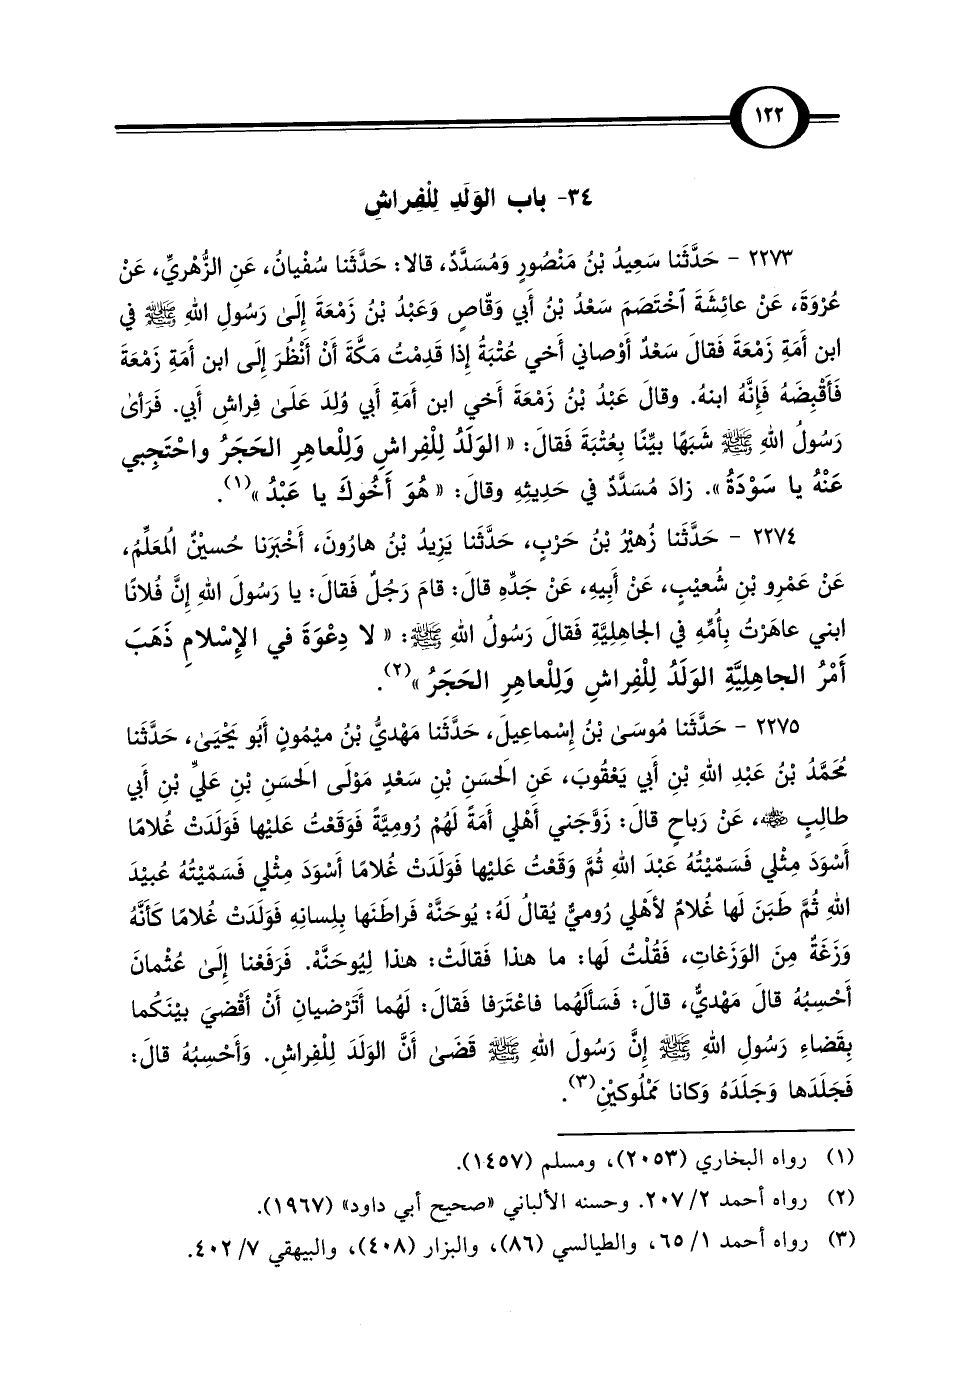 ١٢٢
٣٤- باب الوَلَدِ لِلْفِراشِ
٢٢٧٣ - حَدَّثَنا سَعِيدُ بْنُ مَنْصُورٍ وَمُسَدَّدٌ، قالا: حَدَّثَنا سُفْيانُ، عَنِ الزُّهْريِّ، عَنْ
عُرْوَةَ، عَنْ عائِشَةَ ٱخْتَصَمَ سَعْدُ بْنُ أَبي وَقّاصٍ وَعَبْدُ بْنُ زَمْعَةَ إِلَىٰ رَسُولِ اللهِ ﷺ في
ابن أَمَةِ زَمْعَةَ فَقالَ سَعْدٌ أَوْصاني أَخي عُتْبَةُ إِذا قَدِمْتُ مَكَّةَ أَنْ أَنْظُرَ إِلَى ابن أَمَةِ زَمْعَةَ
فَأَقْبِضَهُ فَإِنَّهُ ابنهُ. وقالَ عَبْدُ بْنُ زَمْعَةَ أَخي ابن أَمَةِ أَبي وُلِدَ عَلَىٰ فِراشِ أَبي. فَرَأىٰ
رَسُولُ اللهِ ﷺ شَبَهًا بيِّنًا بِعُتْبَةَ فَقالَ: « الوَلَدُ لِلْفِراشِ وَلِلْعاهِرِ الحَجَرُ واحْتَجِبي
عَنْهُ يا سَوْدَةُ ». زادَ مُسَدَّدٌ في حَدِيثِهِ وقالَ: « هُوَ أَخُوكَ يا عَبْدُ »(١).
٢٢٧٤ - حَدَّثَنا زُهَيْرُ بْنُ حَرْبٍ، حَدَّثَنا يَزِيدُ بْنُ هارُونَ، أَخْبَرَنا حُسيْنٌ الْمُعَلِّمُ،
عَنْ عَمْرِو بْنِ شُعيْبٍ، عَنْ أَبِيهِ، عَنْ جَدِّهِ قالَ: قامَ رَجُلٌ فَقالَ: يا رَسُولَ اللهِ إِنَّ فُلانًا
ابني عاهَرْتُ بِأُمِّهِ في الجاهِليَّةِ فَقالَ رَسُولُ اللهِ ﷺ: « لا دِعْوَةَ في الإِسْلامِ ذَهَبَ
أَمْرُ الجاهِليَّةِ الوَلَدُ لِلْفِراشِ وَلِلْعاهِرِ الحَجَرُ »(٢).
٢٢٧٥ - حَدَّثَنا مُوسَىٰ بْنُ إِسْماعِيلَ، حَدَّثَنا مَهْديُّ بْنُ ميْمُونٍ أَبُو يَحْيَىٰ، حَدَّثَنا
مُحَمَّدُ بْنُ عَبْدِ اللهِ بْنِ أَبي يَعْقُوبَ، عَنِ الحَسَنِ بْنِ سَعْدٍ مَوْلَى الحَسَنِ بْنِ عَليِّ بْنِ أَبي
طالِبٍ ﵁، عَنْ رَباحٍ قالَ: زَوَّجَني أَهْلي أَمَةً لَهُمْ رُوميَّةً فَوَقَعْتُ عَليْها فَوَلَدَتْ غُلامًا
أَسْوَدَ مِثْلي فَسَمّيْتُهُ عَبْدَ اللهِ ثُمَّ وَقَعْتُ عَليْها فَوَلَدَتْ غُلامًا أَسْوَدَ مِثْلي فَسَمّيْتُهُ عُبيْدَ
اللهِ ثُمَّ طَبَنَ لَها غُلامٌ لأَهْلي رُوميٌّ يُقالُ لَهُ: يُوحَنَّهْ فَراطَنَها بِلِسانِهِ فَوَلَدَتْ غُلامًا كَأَنَّهُ
وَزَغَةٌ مِنَ الوَزَغاتِ، فَقُلْتُ لَها: ما هٰذا فَقالَتْ: هٰذا لِيُوحَنَّهْ. فَرَفَعْنا إِلَىٰ عُثْمانَ
أَحْسِبُهُ قالَ مَهْديٌّ، قالَ: فَسَأَلَهُما فاعْتَرَفا فَقالَ: لَهُما أَتَرْضيانِ أَنْ أَقْضيَ بيْنَكُما
بِقَضاءِ رَسُولِ اللهِ ﷺ إِنَّ رَسُولَ اللهِ ﷺ قَضَىٰ أَنَّ الوَلَدَ لِلْفِراشِ. وَأَحْسِبُهُ قالَ:
فَجَلَدَها وَجَلَدَهُ وَكانا مَمْلُوكيْنِ(٣).
(١) رواه البخاري (٢٠٥٣)، ومسلم (١٤٥٧).
(٢) رواه أحمد ٢/ ٢٠٧. وحسنه الألباني «صحيح أبي داود» (١٩٦٧).
(٣) رواه أحمد ١/ ٦٥، والطيالسي (٨٦)، والبزار (٤٠٨)، والبيهقي ٧/ ٤٠٢.